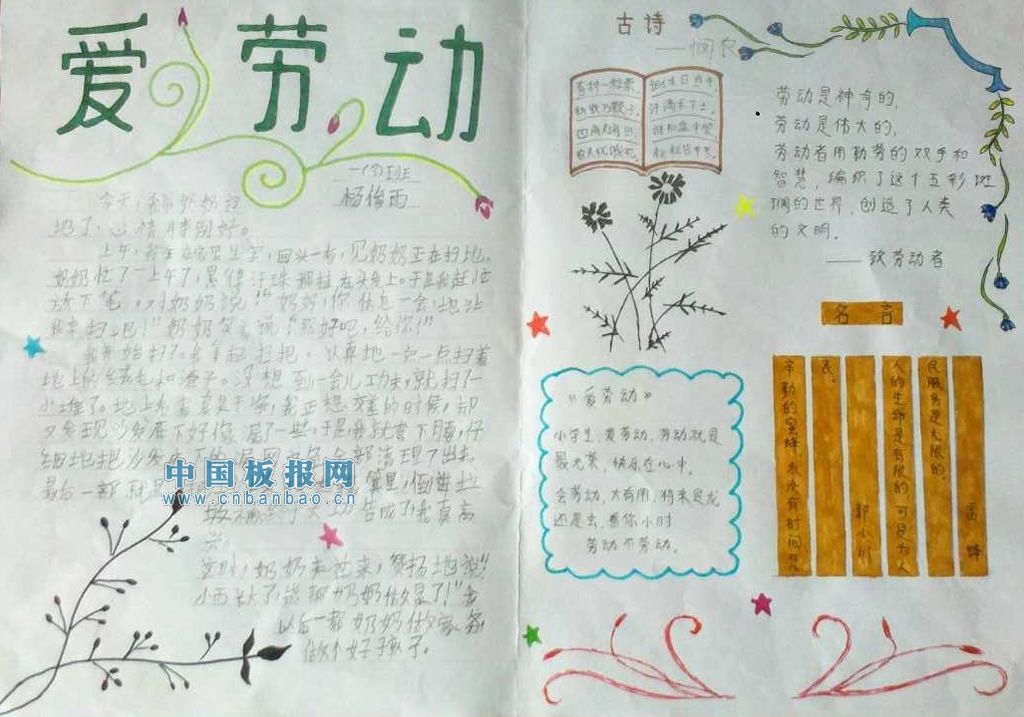 爱劳动
一(3)班
杨俊雨
今天,帮奶奶扫
地了,心情特别好。
上午,我在写生字,回头一看,见奶奶正在扫地,
奶奶忙了一上午了,累得汗珠都挂在头上。于是我赶忙
放下笔,对奶奶说“奶奶,你休息一会,地让
我来扫吧!”奶奶笑了说,“那好吧,给你!”
我开始扫了。我拿起扫把,认真地一点一点扫着
小堆了。地上看着干净,我正想交差的时候,却
又发现沙发底下好像漏了一些。于是我就弯下腰,仔
细地把沙发底下的
最后一部
大功告成了,我真高
兴。
这时,奶奶走过来,赞扬地说:“
小雨长大了,能帮奶奶做事了!”我
以后一帮奶奶做家务,
做个好子孩子。
中国板报网
www.cnbanbao.cn
古诗
——悯农
春种一粒粟,
秋收万颗子。
四海无闲田,
农夫犹饿死。
锄禾日当午,
汗滴禾下土。
谁知盘中餐,
粒粒皆辛苦。
劳动是神奇的,
劳动是伟大的,
劳动者用勤劳的双手和
智慧,编织了这个五彩斑
斓的世界,创造了人类
的文明。
——致劳动者
《爱劳动》
小学生,爱劳动,劳动就是
最光荣,快乐在心中。
会劳动,大有用,将来是龙
还是虫,看你小时
劳动不劳动。
名言
辛勤的蜜蜂,永没有时间悲
哀。
郭小川
人的生命是有限的,可是为人
民服务是无限的。
雷锋